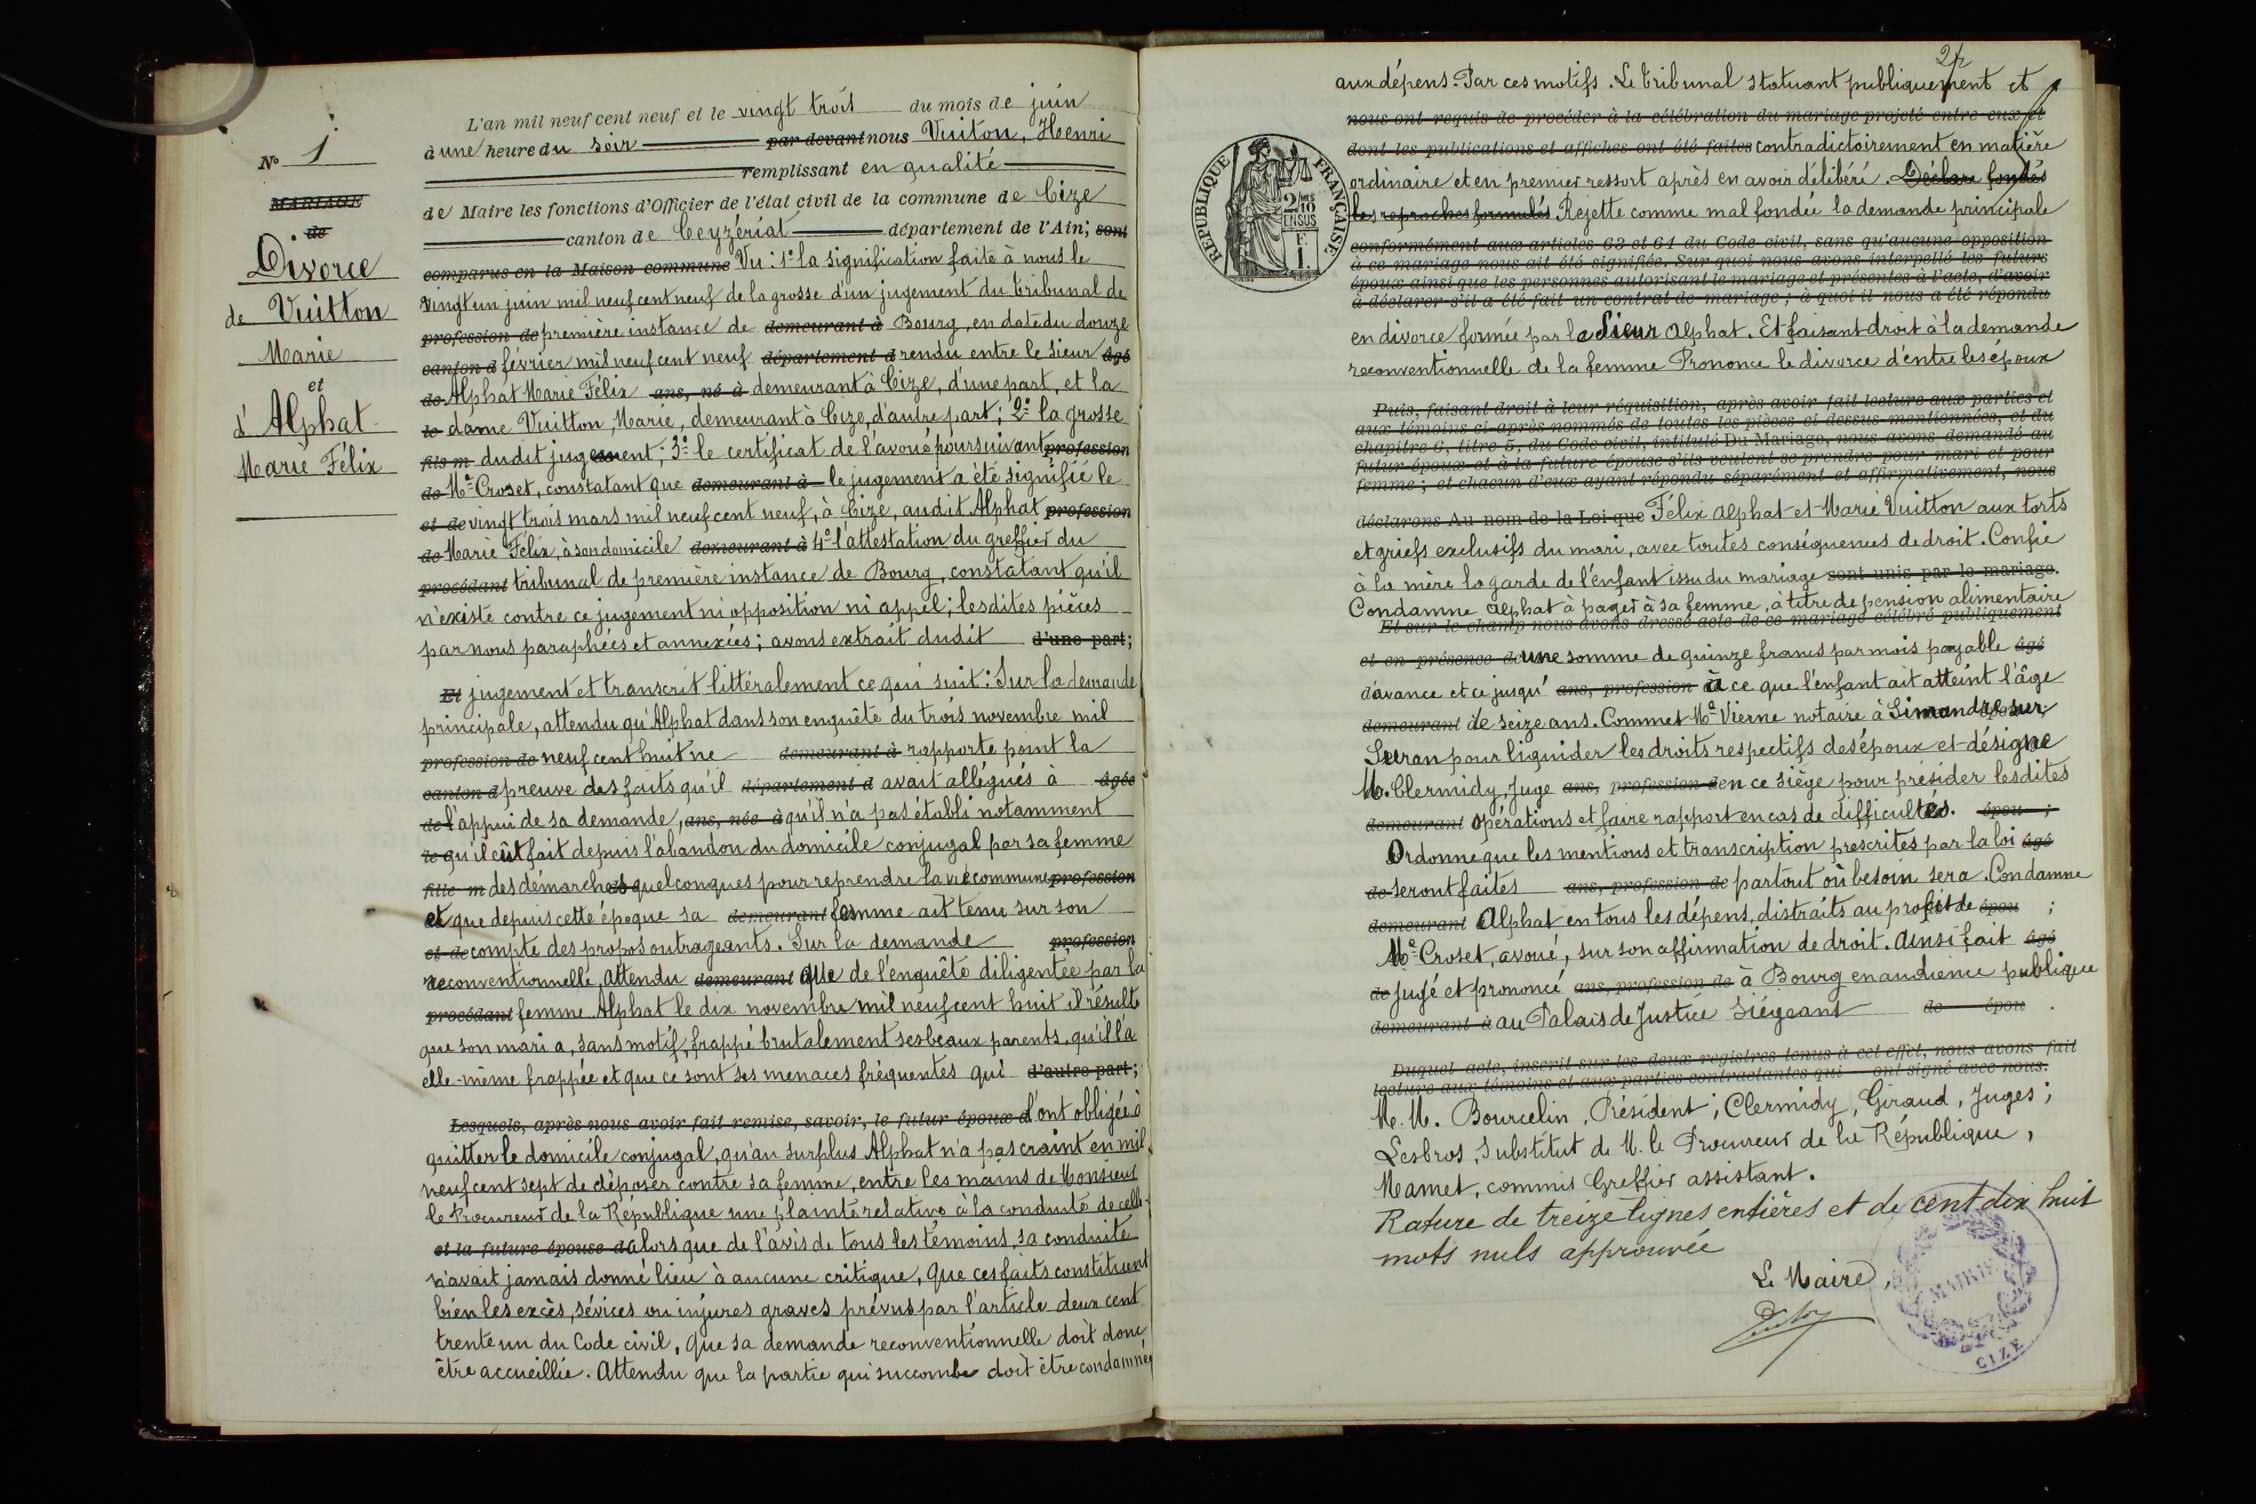 L'an mil neuf cent neuf et le vingt trois du mois de juin
à une heure du soir par devant nous Vuiton, Henri
remplissant en qualité
de Maire les fonctions d'Officier de l'état civil de la commune de Cize
canton de Ceyzériat département de l'Ain; sont
comparus en la Maison commune Vu : 1° la signification faite à nous le
vingt un juin mil neuf cent neuf de la grosse d'un jugement du tribunal de
profession de première instance de demeurant à Bourg, en date du douze
canton d février mil neuf cent neuf département d rendu entre le sieur âgé
de Alphat Marie Félix ans, né à demeurant à Cize, d'une part, et la
le dame Vuitton, Marie, demeurant à Cize, d'autre part; 2° la grosse
fils m dudit jugement; 3° le certificat de l'avoué poursuivant profession
de Me Croset, constatant que demeurant à le jugement a été signifié le
et de vingt trois mars mil neuf cent neuf, à Cize, audit Alphat profession
de Marie Félix, à son domicile demeurant à 4° l'attestation du greffier du
procédant tribunal de première instance de Bourg, constatant qu'il
n'existe contre ce jugement ni opposition ni appel; lesdites pièces
par nous paraphées et annexées; avons extrait dudit d'une part;
Et jugement et transcrit littéralement ce qui suit : Sur la demande
principale, attendu qu'Alphat dans son enquête du trois novembre mil
profession de neuf cent huit ne demeurant à rapporte point la
canton d preuve des faits qu'il département d avait allégués à âgée
de l'appui de sa demande, ans, née à qu'il n'a pas établi notamment
le qu'il eût fait depuis l'abandon du domicile conjugal par sa femme
fille m des démarches quelconques pour reprendre la vie commune profession
et que depuis cette époque sa demeurant femme ait tenu sur son
et de compte des propos outrageants. Sur la demande profession
reconventionnelle, Attendu demeurant que de l'enquête diligentée par la
procédant femme Alphat le dix novembre mil neuf cent huit il résulte
que son mari a, sans motif, frappé brutalement ses beaux parents, qu'il l'a
elle-même frappée et que ce sont ses menaces fréquentes qui d'autre part;
Lesquels, après nous avoir fait remise, savoir, le futur époux d l'ont obligée à
quitter le domicile conjugal, qu'au surplus Alphat n'a pas craint en mil
neuf cent sept de déposer contre sa femme, entre les mains de Monsieur
le Procureur de la République une plainte relative à la conduite de celle-
et la future épouse d alors que de l'avis de tous les témoins, sa conduite
n'avait jamais donné lieu à aucune critique, Que ces faits constituent
bien les excès, sévices ou injures graves prévus par l'article deux cent
trente un du Code civil, Que sa demande reconventionnelle doit donc
être accueillie. Attendu que la partie qui succombe doit être condamnée
N° 1
MARIAGE
de
Divorce
de Vuitton
Marie
et
d' Alphat
Marie Félix
2
aux dépens. Par ces motifs. Le tribunal statuant publiquement et
nous ont requis de procéder à la célébration du mariage projeté entre eux et
dont les publications et affiches ont été faites contradictoirement en matière
ordinaire et en premier ressort après en avoir délibéré. Déclare fondés
les reproches formulés Rejette comme mal fondée la demande principale
conformément aux articles 63 et 64 du Code civil, sans qu'aucune opposition
à ce mariage nous ait été signifiée. Sur quoi nous avons interpellé les futurs
époux ainsi que les personnes autorisant le mariage et présentes à l'acte, d'avoir
à déclarer s'il a été fait un contrat de mariage; à quoi il nous a été répondu
en divorce formée par le Sieur Alphat. Et faisant droit à la demande
reconventionnelle de la femme Prononce le divorce d'entre les époux
Puis, faisant droit à leur réquisition, après avoir fait lecture aux parties et
aux témoins ci-après nommés de toutes les pièces ci-dessus mentionnées, et du
chapitre 6, titre 5, du Code civil, intitulé Du Mariage, nous avons demandé au
futur époux et à la future épouse s'ils veulent se prendre pour mari et pour
femme; et chacun d'eux ayant répondu séparément et affirmativement, nous
déclarons Au nom de la Loi que Félix Alphat et Marie Vuitton aux torts
et griefs exclusifs du mari, avec toutes conséquences de droit. Confie
à la mère la garde de l'enfant issu du mariage sont unis par le mariage.
Condamne Alphat à payer à sa femme, à titre de pension alimentaire
Et sur le champ nous avons dressé acte de ce mariage célébré publiquement
et en présence de une somme de quinze francs par mois payable âgé
d'avance et ce jusqu' ans, profession à ce que l'enfant ait atteint l'âge
demeurant de seize ans. Commet Me Vierne notaire à Simandre sur
Suran pour liquider les droits respectifs des époux et désigne
M. Clermidy, Juge ans, profession d en ce siège pour présider lesdites
demeurant opérations et faire rapport en cas de difficultés. épou ;
Ordonne que les mentions et transcription prescrites par la loi âgé
de seront faites ans, profession de partout où besoin sera. Condamne
demeurant Alphat en tous les dépens, distraits au profit de épou ;
Me Croset, avoué, sur son affirmation de droit. Ainsi fait âgé
de jugé et prononcé ans, profession de à Bourg en audience publique
demeurant à au Palais de Justice Siégeant de épou .
Duquel acte, inscrit sur les deux registres tenus à cet effet, nous avons fait
lecture aux témoins et aux parties contractantes qui ont signé avec nous.
M. M. Bourcelin, Président; Clermidy, Giraud, Juges;
Lesbros, Substitut de M. le Procureur de la République,
Mamet, commis Greffier assistant.
Rature de treize lignes entières et de cent dix huit
mots nuls approuvée
Le Maire,
REPUBLIQUE FRANÇAISE
2/10 EN SUS
F.
1.
MAIRIE
CIZE